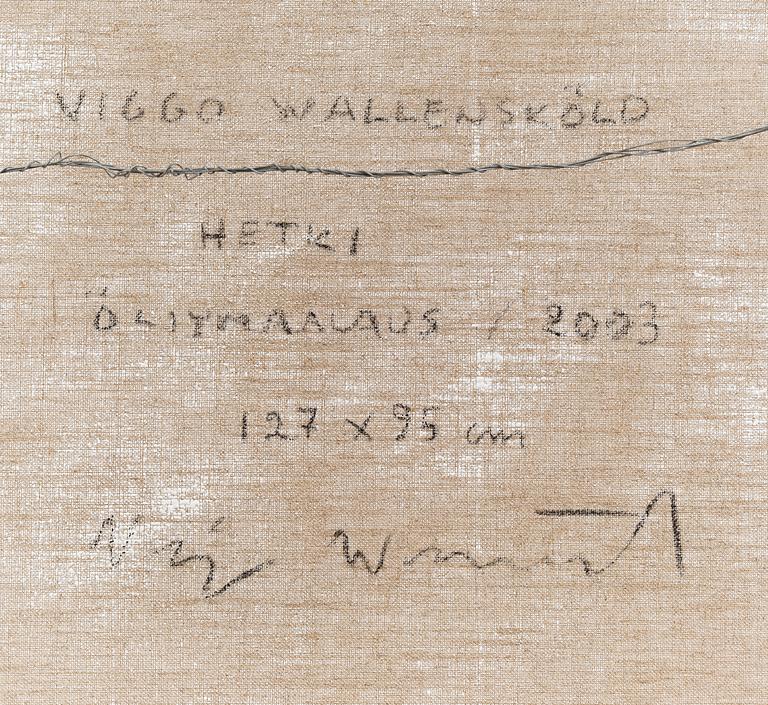 VIGGO WALLENSKÖLD
HETKI
ÖLJYMAALAUS / 2003
127 x 95 cm